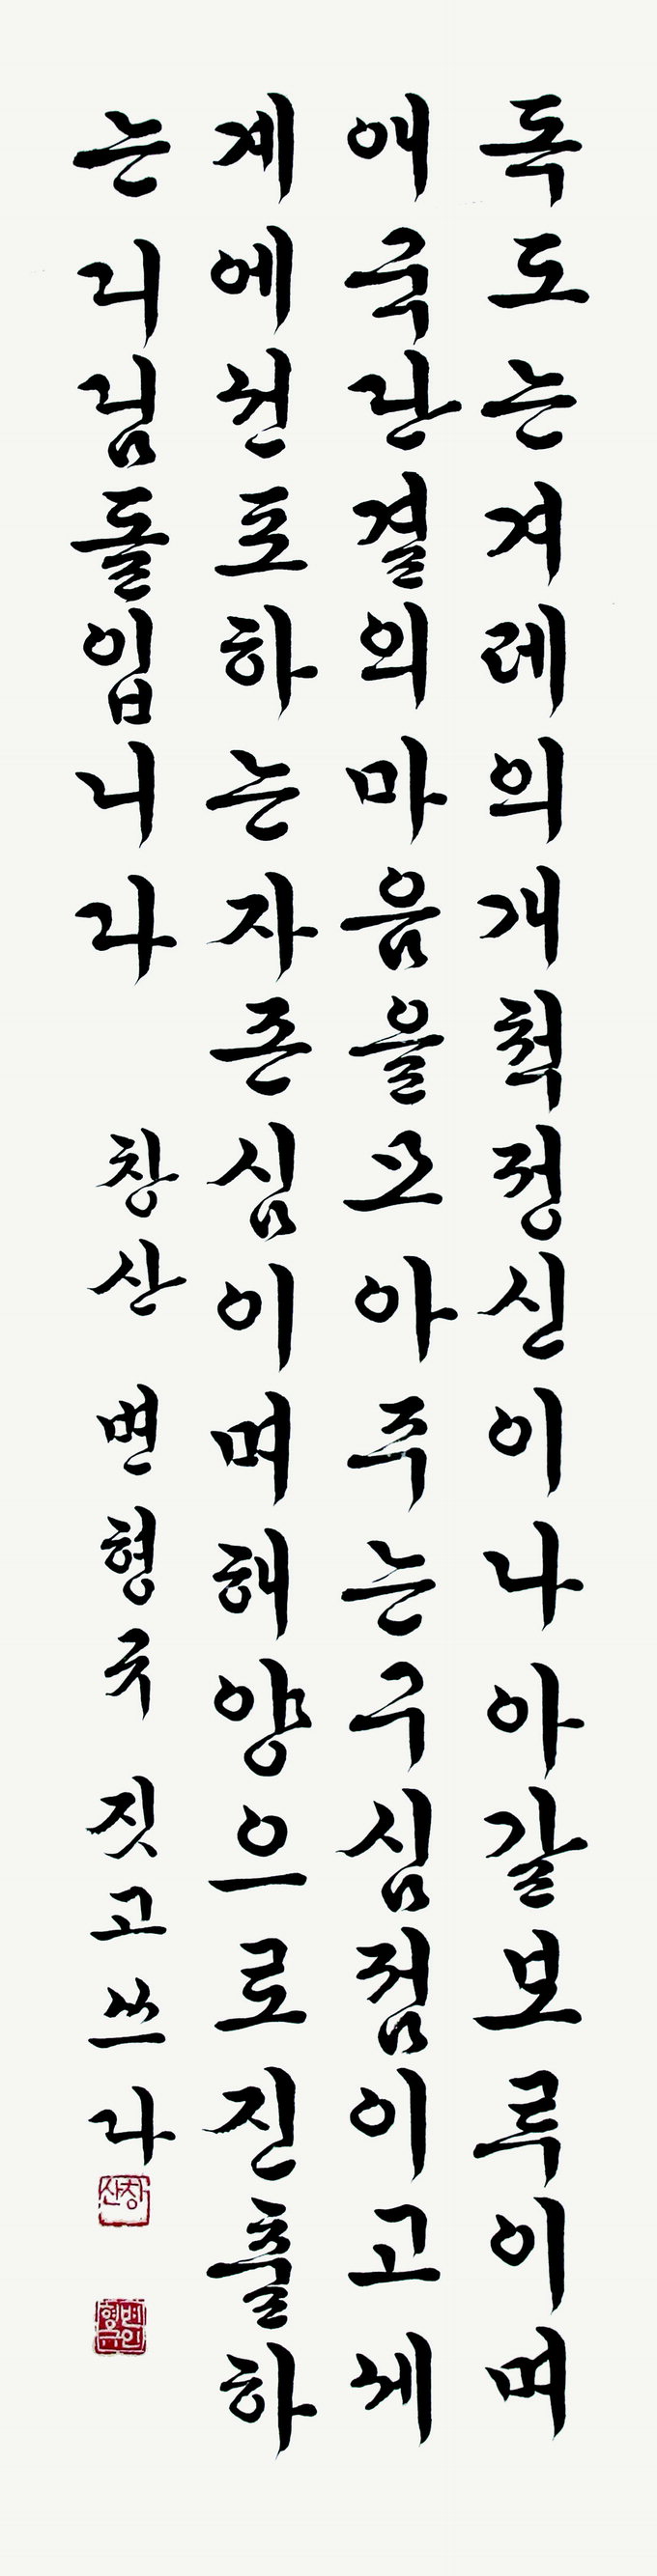 독도는겨레의개척정신이나아갈보루이며
애국단결의마음을모아주는구심점이고세
계에선포하는자존심이며해양으로진출하
는디딤돌입니다
창산 변형구 짓고쓰다
창산
변형구인